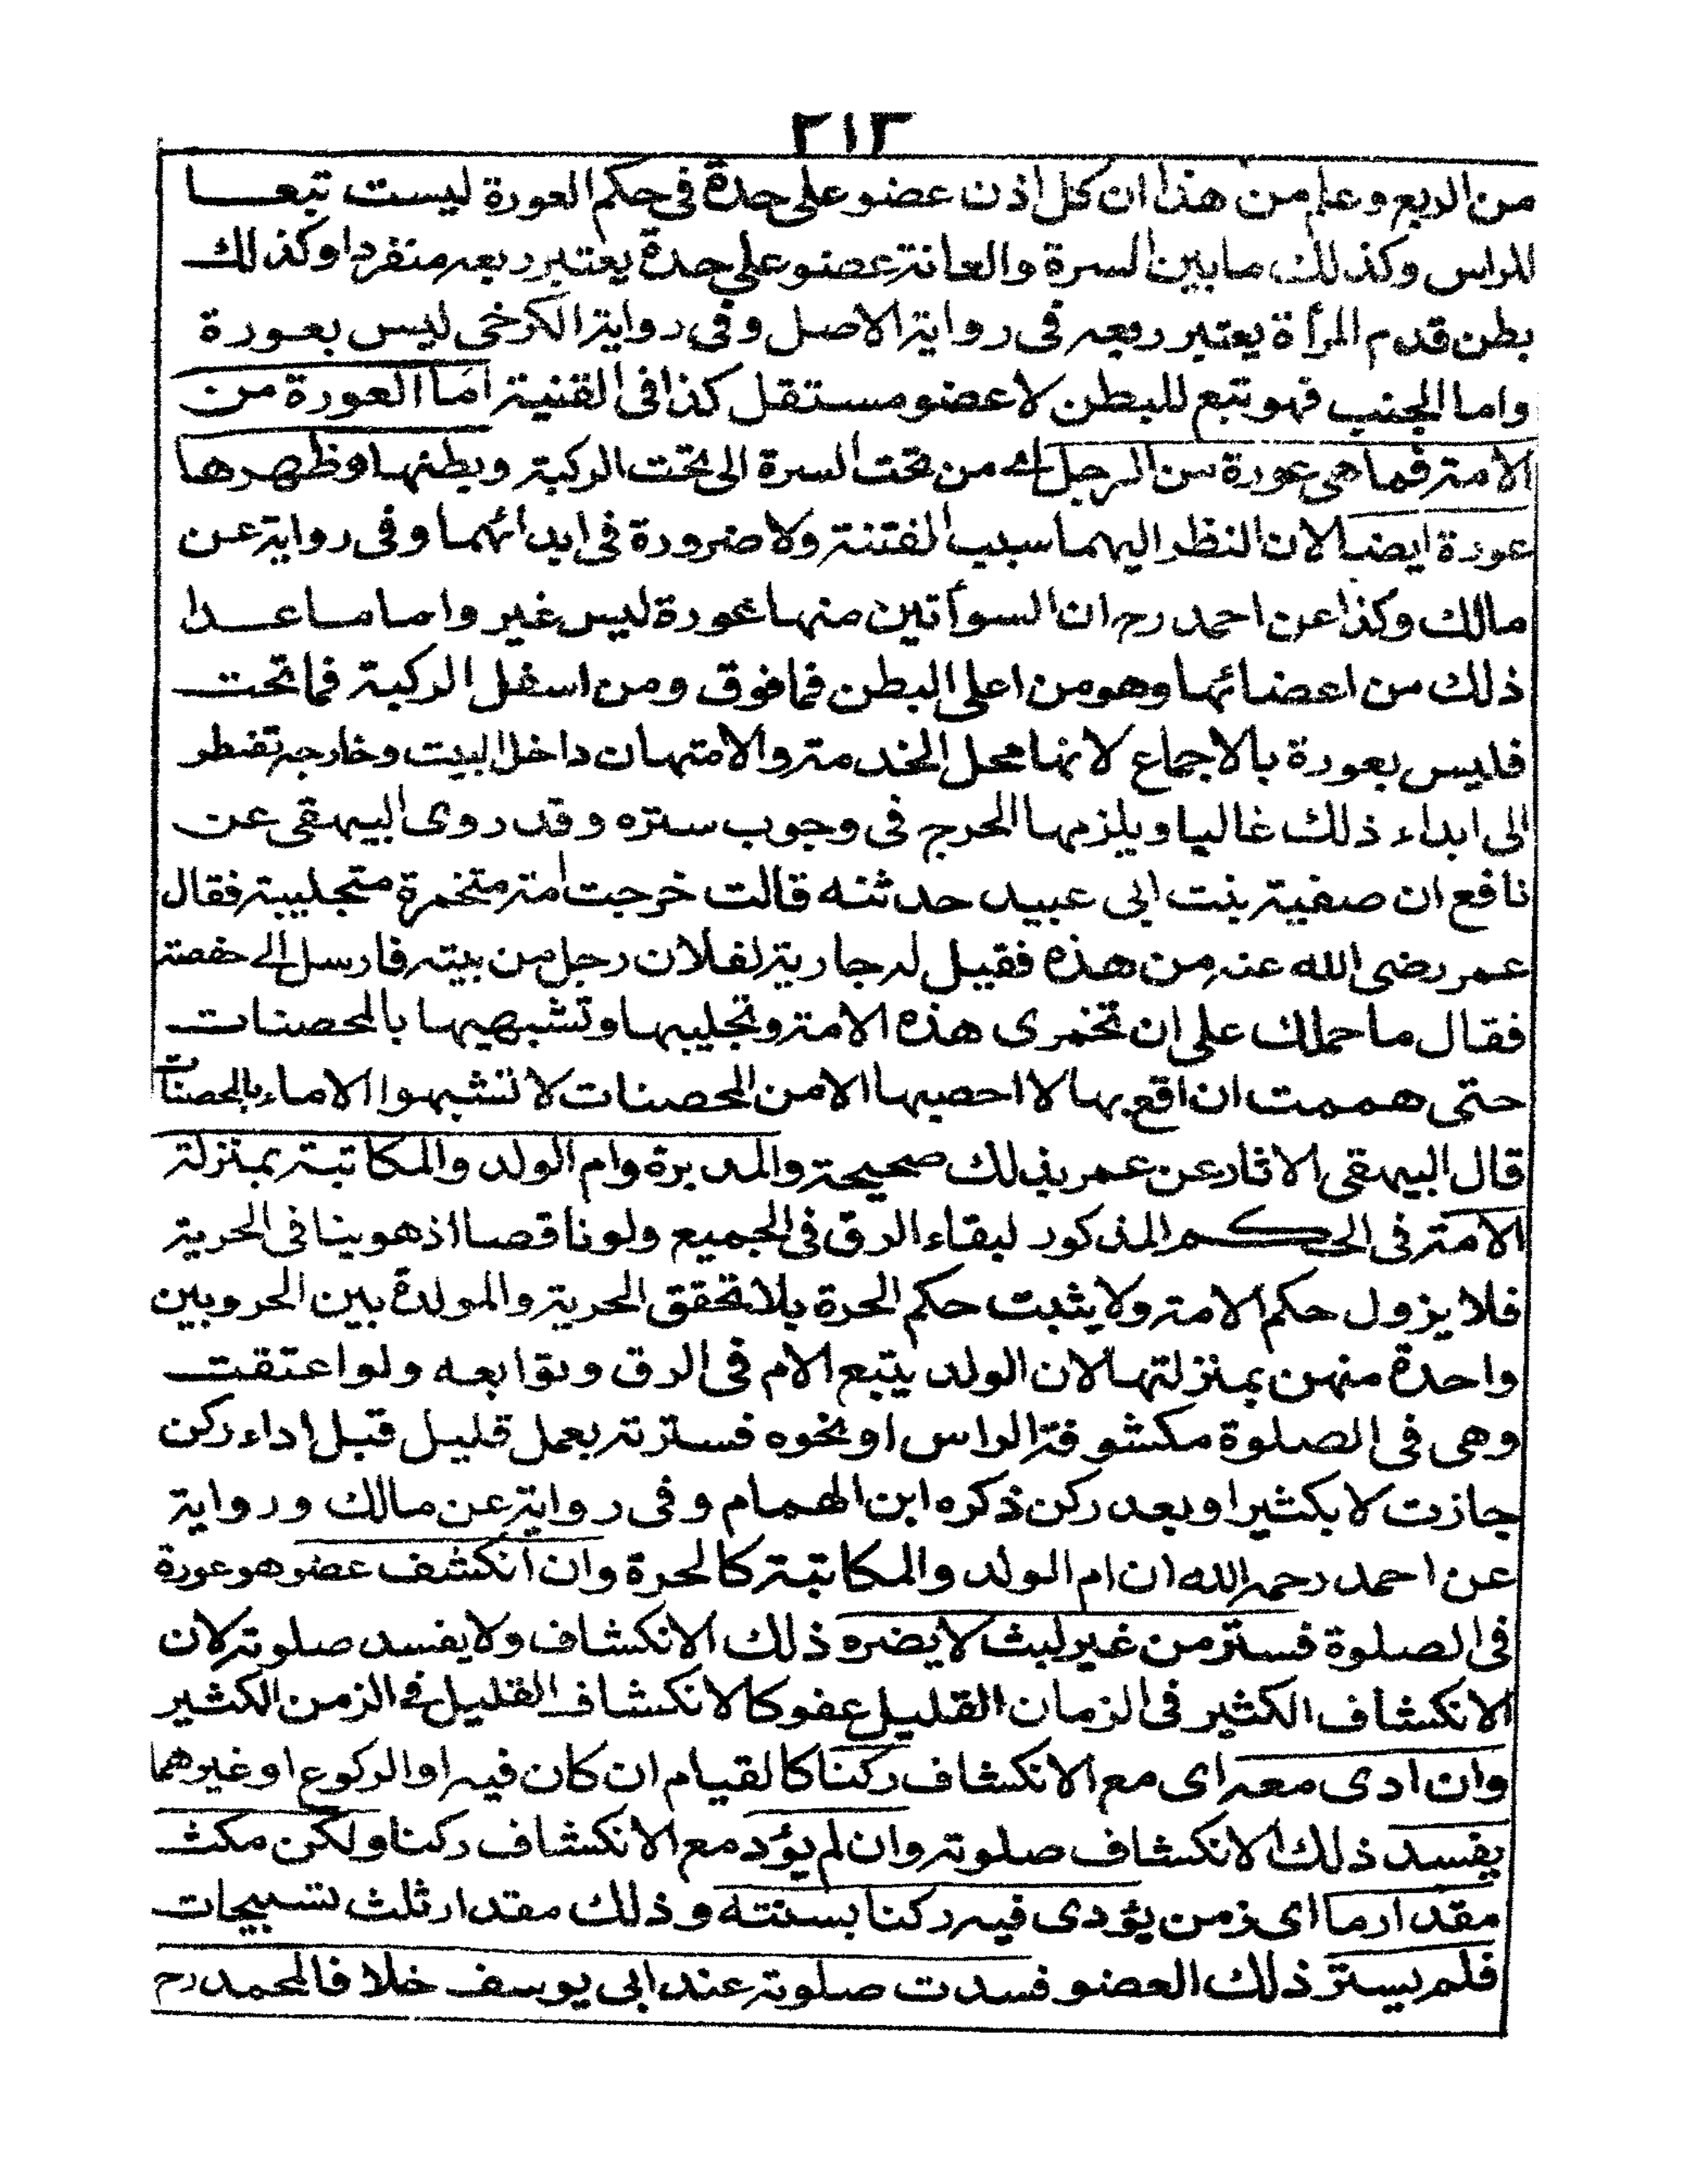 ٢١٣
من الربع وعلم من هذا ان كل اذن عضو على حدة فى حكم العورة ليست تبعا
للراس وكذلك ما بين السرة والعانة عضو على حدة يعتبر ربعه منفردا وكذلك
بطن قدم المرأة يعتبر ربعه فى رواية الاصل وفى رواية الكرخى ليس بعورة
واما الجنب فهو تبع للبطن لا عضو مستقل كذا فى القنية اما العورة من
الامة فما هى عورة من الرجل اى من تحت السرة الى تحت الركبة وبطنها وظهرها
عورة ايضا لان النظر اليهما سبب الفتنة ولا ضرورة فى ابدائهما وفى رواية عن
مالك وكذا عن احمد رح ان السوأتين منها عورة ليس غير واما ما عدا
ذلك من اعضائها وهو من اعلى البطن فما فوق ومن اسفل الركبة فما تحت
فليس بعورة بالاجماع لانها محل الخدمة والامتهان داخل البيت وخارجه تضطر
الى ابداء ذلك غالبا ويلزمها الحرج فى وجوب ستره وقد روى البيهقى عن
نافع ان صفية بنت ابى عبيد حدثته قالت خرجت امة متخمرة متجلببة فقال
عمر رضى الله عنه من هذه فقيل له جارية لفلان رجل من بيته فارسل الى حفصة
فقال ما حملك على ان تخمرى هذه الامة وتجلبيها وتشبهيها بالمحصنات
حتى هممت ان اقع بها لا احصبها الا من المحصنات لا تشبهوا الاماء بالمحصنات
قال البيهقى الاثار عن عمر بذلك صحيحة والمدبرة وام الولد والمكاتبة بمنزلة
الامة فى الحكم المذكور لبقاء الرق فى الجميع ولو ناقصا اذ هو ينافى الحرية
فلا يزول حكم الامة ولا يثبت حكم الحرة بلا تحقق الحرية والمولدة بين الحر وبين
واحدة منهن بمنزلتها لان الولد يتبع الام فى الرق وتوابعه ولو اعتقت
وهى فى الصلوة مكشوفة الراس او نحوه فسترته بعمل قليل قبل اداء ركن
جازت لا بكثير او بعد ركن ذكره ابن الهمام وفى رواية عن مالك ورواية
عن احمد رحمه الله ان ام الولد والمكاتبة كالحرة وان انكشف عضو هو عورة
فى الصلوة فستر من غير لبث لا يضره ذلك الانكشاف ولا يفسد صلوته لان
الانكشاف الكثير فى الزمان القليل عفو كالانكشاف القليل فى الزمن الكثير
وان ادى معه اى مع الانكشاف ركنا كالقيام ان كان فيه او الركوع او غيرهما
يفسد ذلك الانكشاف صلوته وان لم يؤد مع الانكشاف ركنا ولكن مكث
مقدار ما اى زمن يؤدى فيه ركنا بسنته وذلك مقدار ثلث تسبيحات
فلم يستر ذلك العضو فسدت صلوته عند ابى يوسف خلافا لمحمد رح